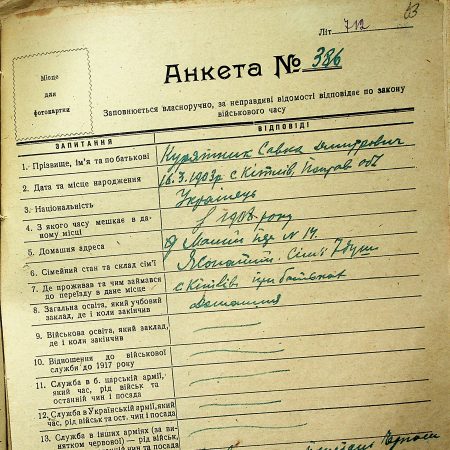 83
Літ. 712
Місце
для
фотокартки
Анкета № 386
Заповнюється власноручно, за неправдиві відомості відповідає по закону
військового часу
ЗАПИТАННЯ ВІДПОВІДІ
1. Прізвище, ім'я та по батькові Курятник Савка Дмитрович
2. Дата та місце народження 16.3.1903р. с Кітлів, обл
3. Національність Українець
4. З якого часу мешкає в да-
ному місці з 1908 року
5. Домашня адреса № 14.
6. Сімейний стан та склад сім'ї Жонатий. Сімї 7 душ
7. Де проживав та чим займався
до переїзду в дане місце с Кітлів при батьках
8. Загальна освіта, який учбовий
заклад, де і коли закінчив Домашня
9. Військова освіта, який заклад,
де і коли закінчив
10. Відношення до військової
служби до 1917 року
11. Служба в б. царській армії,
який час, рід військ та
останній чин і посада
12. Служба в Українській армії, який
час, рід військ та ост. чин і посада
13. Служба в інших арміях (за ви-
нятком червоної) — рід військ,